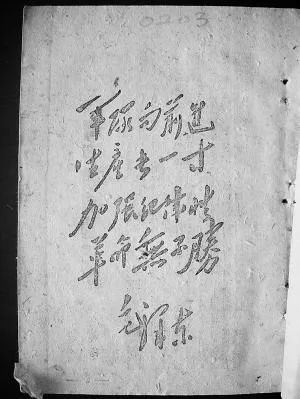 0203
軍隊向前進
生產長一寸
加強紀律性
革命無不勝
毛澤東